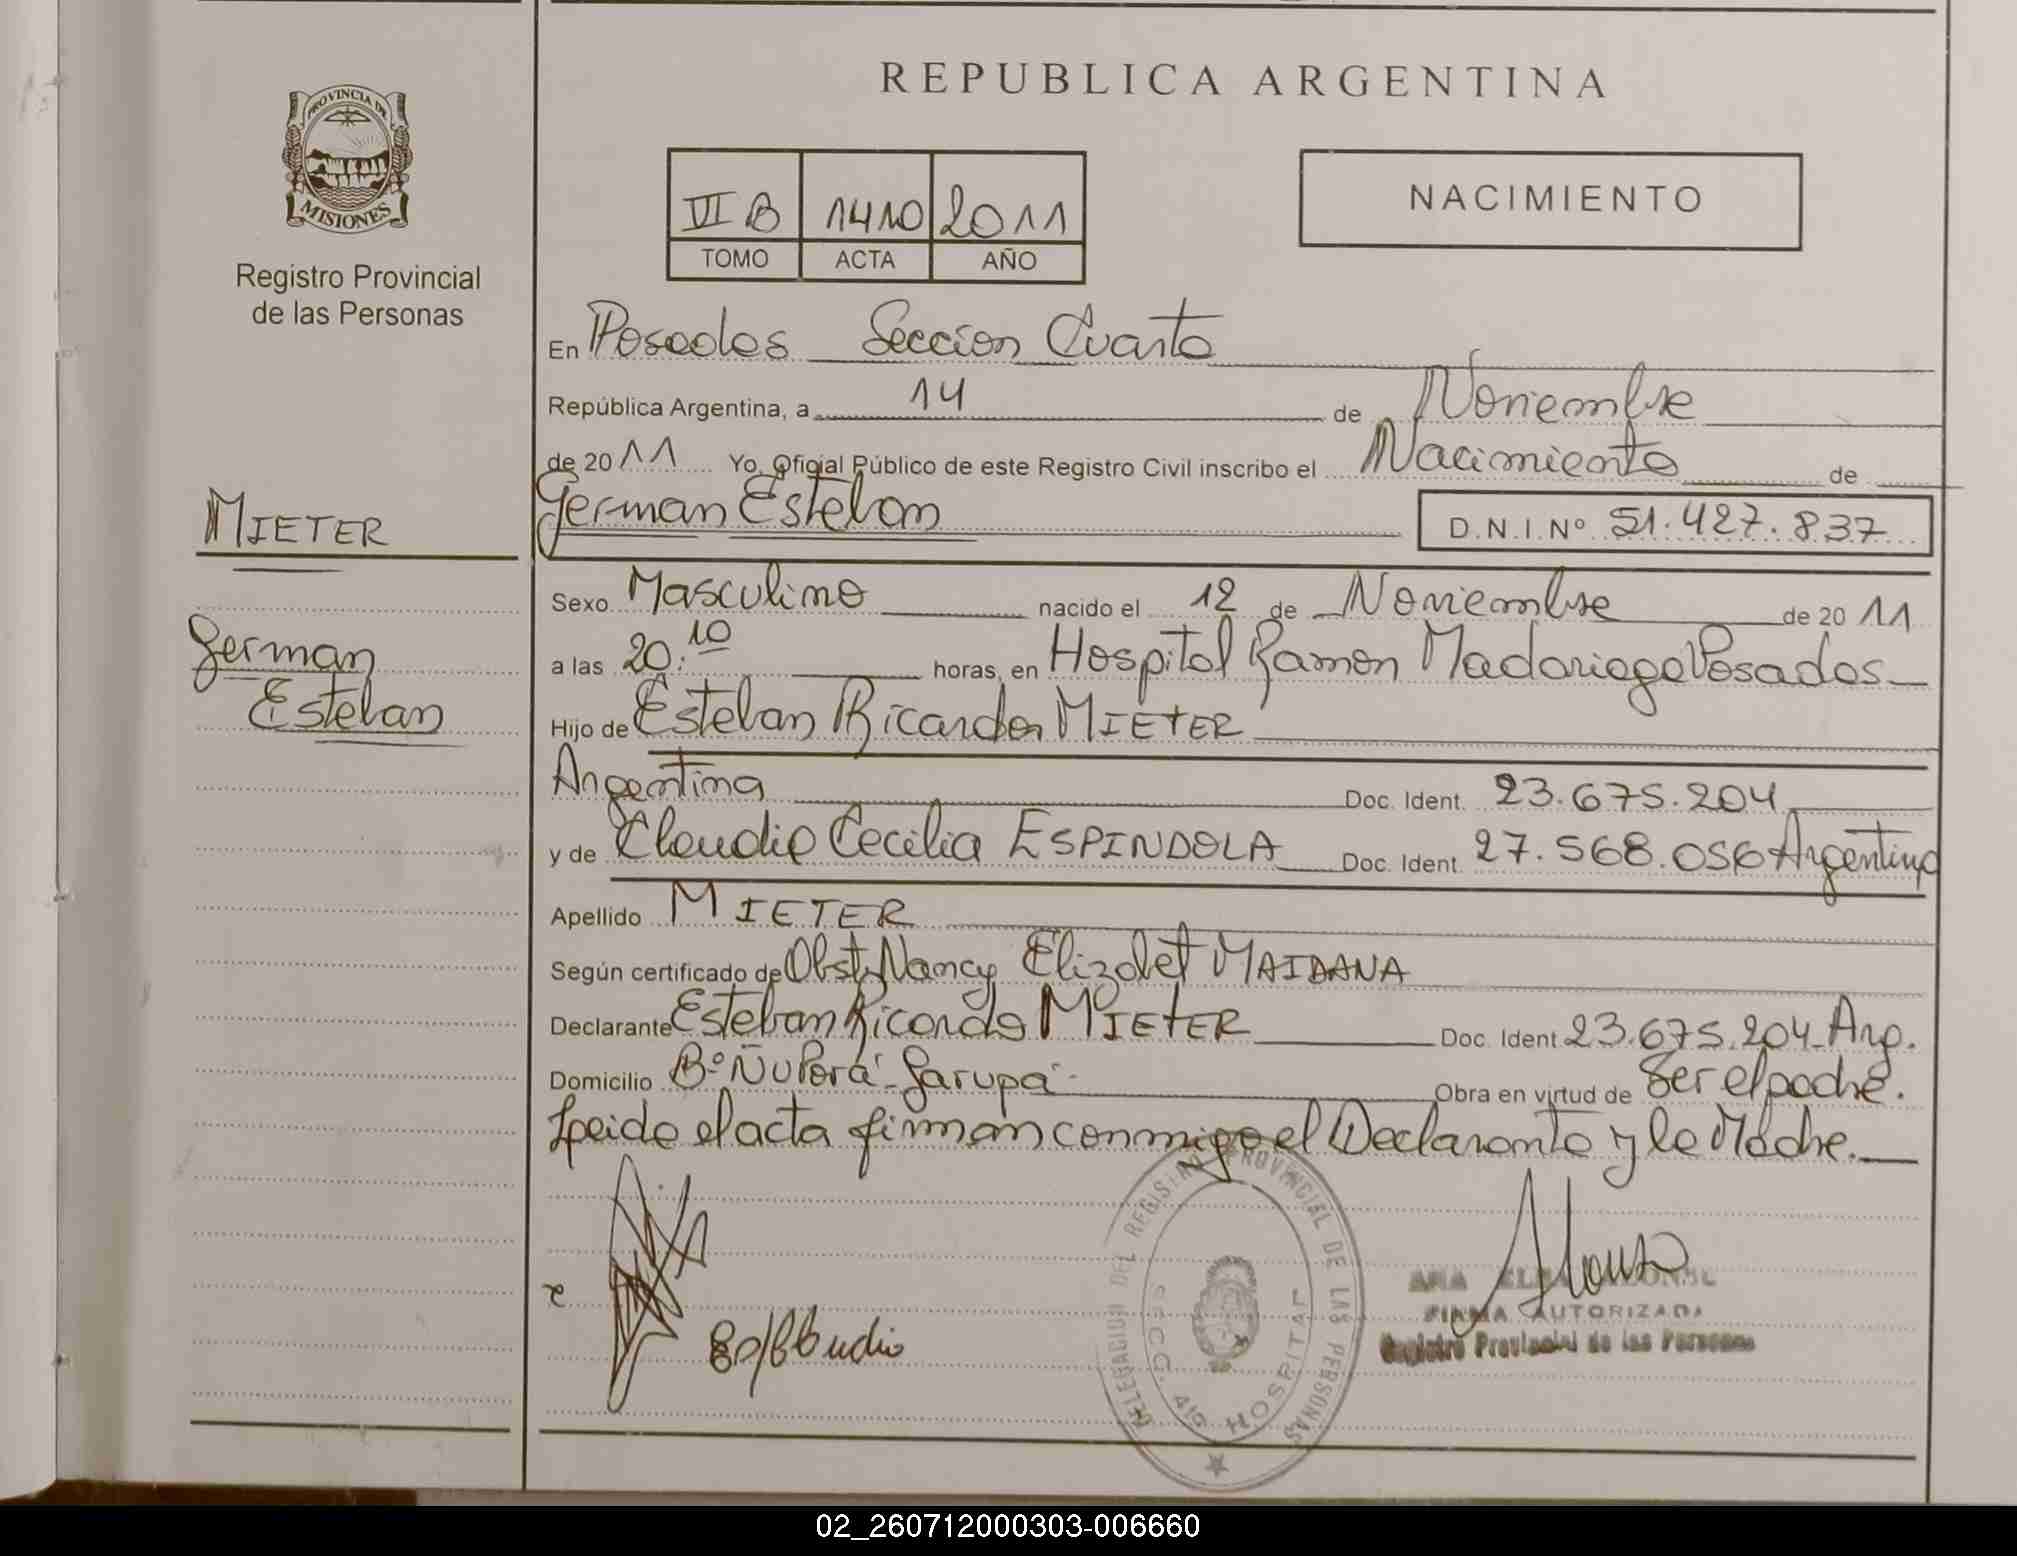 REPUBLICA ARGENTINA
PROVINCIA DE
MISIONES
Registro Provincial
de las Personas
VI B 1410 2011
TOMO ACTA AÑO
NACIMIENTO
En Posadas Seccion Cuarta
República Argentina, a 14 de Noviembre
de 2011 Yo, Oficial Público de este Registro Civil inscribo el Nacimiento de
German Esteban D.N.I.Nº 51.427.837
MIETER
German
Esteban
Sexo Masculino nacido el 12 de Noviembre de 2011
a las 20:10 horas, en Hospital Ramon Madariaga Posadas
Hijo de Esteban Ricardo MIETER
Argentina Doc. Ident. 23.675.204
y de Claudia Cecilia ESPINDOLA Doc. Ident. 27.568.056 Argentina
Apellido MIETER
Según certificado de Obst. Nancy Elizabet MAIDANA
Declarante Esteban Ricardo MIETER Doc. Ident 23.675.204 Arg.
Domicilio Bº Ñu Porá - Garupá - Obra en virtud de Ser el padre.
Leida el acta firman conmigo el Declarante y la Madre.
DELEGACION DEL REGISTRO PROVINCIAL DE LAS PERSONAS
SECC. 4ta HOSPITAL
ANA
FIRMA AUTORIZADA
Registro Provincial de las Personas
02_260712000303-006660